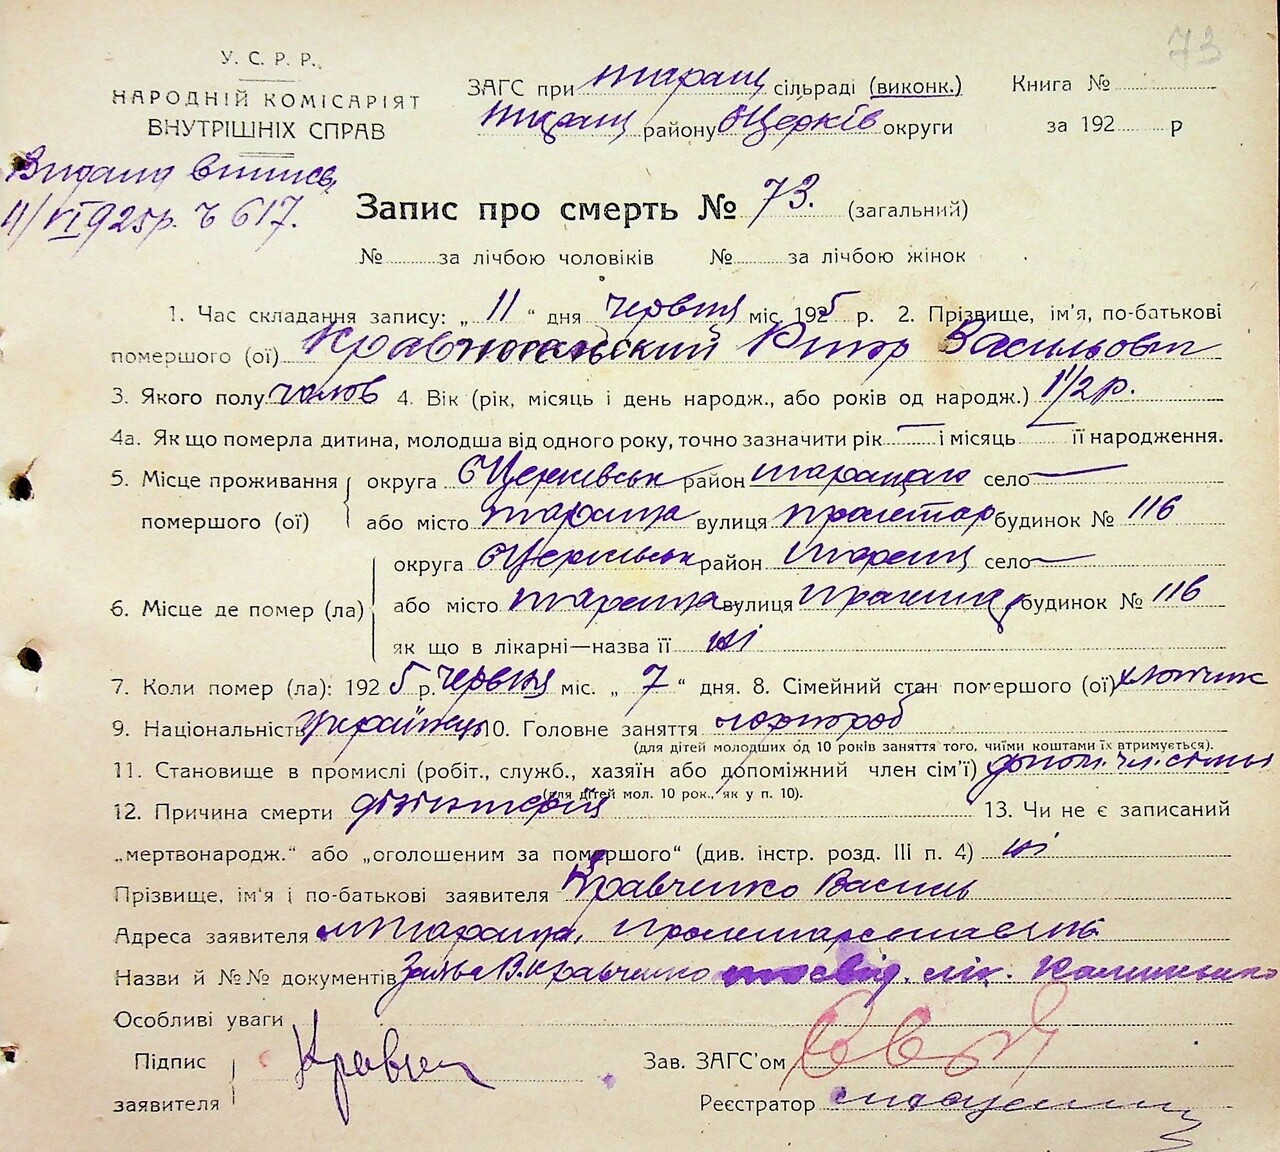 73
У. С. Р. Р.
НАРОДНІЙ КОМІСАРІЯТ
ВНУТРІШНІХ СПРАВ
ЗАГС при Таращ сільраді (виконк.)
Таращ району БЦерків округи
Книга №
за 192 р
Видана випись
11/VI 925р. Ч 617.
Запис про смерть № 73. (загальний)
№ за лічбою чоловіків № за лічбою жінок
1. Час складання запису: „ 11 “ дня червня міс. 1925 р. 2. Прізвище, ім'я, по-батькові
помершого (ої) Васильович
3. Якого полу чолов 4. Вік (рік, місяць і день народж., або років од народж.) 1 1/2 р.
4а. Як що померла дитина, молодша від одного року, точно зазначити рік — і місяць — її народження.
5. Місце проживання помершого (ої)
округа БЦерківськ район Таращ село —
або місто Тараща вулиця Пролетар будинок № 116
6. Місце де помер (ла)
округа БЦерківськ район Таращ село —
або місто Тараща вулиця будинок № 116
як що в лікарні—назва її ні
7. Коли помер (ла): 1925 р. червня міс. „ 7 “ дня. 8. Сімейний стан помершого (ої) хлопчик
9. Національність українець 10. Головне заняття чорнороб
(для дітей молодших од 10 років заняття того, чиїми коштами їх втримується).
11. Становище в промислі (робіт., служб., хазяїн або допоміжний член сім'ї) допом. чл. сімьї
(для дітей мол. 10 рок., як у п. 10).
12. Причина смерти дізінтерія 13. Чи не є записаний
„мертвонародж.“ або „оголошеним за помершого“ (див. інстр. розд. III п. 4) ні
Прізвище, ім'я і по-батькові заявителя Кравченко Василь
Адреса заявителя м Тараща, Пролетарська 116
Назви й №№ документів Заява В. Кравченко посвід. лік. Калиненко
Особливі уваги
Підпис заявителя Кравчен
Зав. ЗАГС'ом
Реєстратор